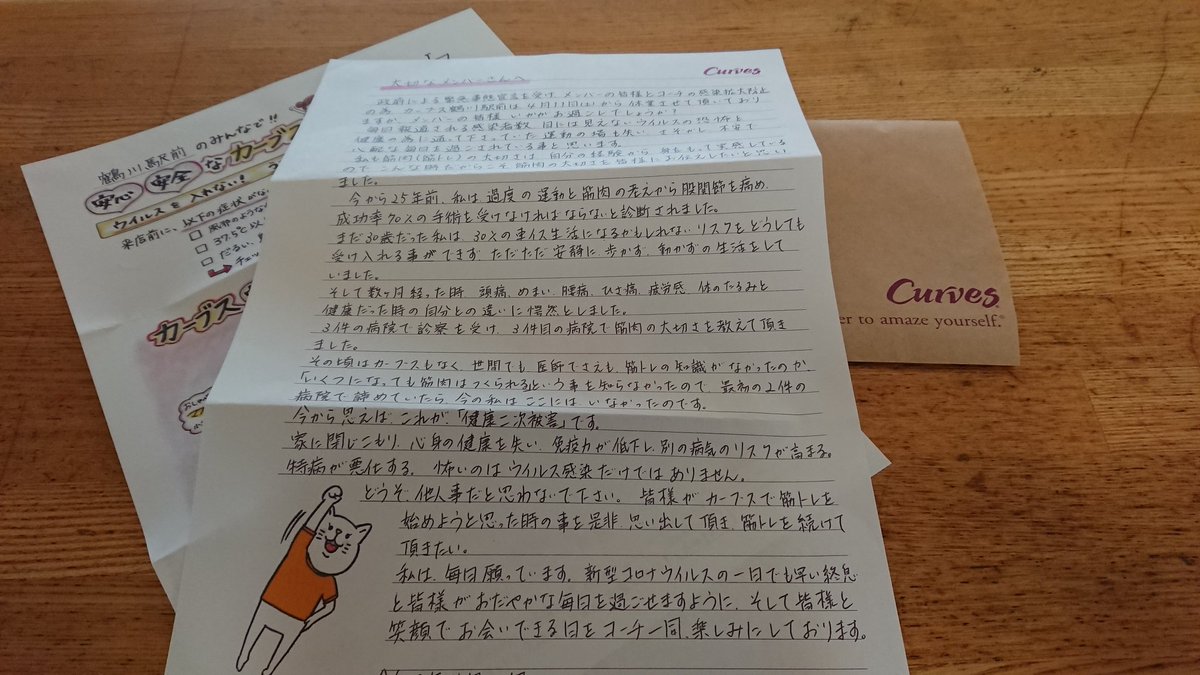 Curves
大切なメンバーさんへ
政府による緊急事態宣言を受け、メンバーの皆様とコーチの感染拡大防止
の為、カーブス鶴川駅前は4月11日(土)から休業させて頂いており
ますが、メンバーの皆様、いかがお過ごしでしょうか?
毎日報道される感染者数、目には見えないウイルスの恐怖と
健康の為に通って下さっていた運動の場も失い、さぞかし、不安で
な毎日を過ごされている事と思います。
私も筋肉(筋トレ)の大切さは、自分の経験から、身をもって実感している
ので、こんな時だからこそ筋肉の大切さを皆様にお伝えしたいと思い
ました。
今から25年前、私は過度の運動と筋肉の考えから股関節を痛め、
成功率70%の手術を受けなければならないと診断されました。
まだ30歳だった私は、30%の車イス生活になるかもしれないリスクをどうしても
受け入れる事ができず、ただただ安静に、歩かず、動かずの生活をして
いました。
そして数ヶ月経った時、頭痛、めまい、腰痛、ひざ痛、疲労感、体のたるみと
健康だった時の自分との違いに愕然としました。
3件の病院で診察を受け、3件目の病院で筋肉の大切さを教えて頂き
ました。
その頃はカーブスもなく、世間でも、医師でさえも、筋トレの知識がなかったのか
「いくつになっても筋肉はつくられる」という事を知らなかったので、最初の2件の
病院で諦めていたら、今の私はここにはいなかったのです。
今から思えば、これが、「健康二次被害」です。
家に閉じこもり、心身の健康を失い、免疫力が低下し、別の病気のリスクが高まる。
持病が悪化する。怖いのはウイルス感染だけではありません。
どうぞ、他人事だと思わないで下さい。皆様がカーブスで筋トレを
始めようと思った時の事を是非、思い出して頂き、筋トレを続けて
頂きたい。
私は、毎日願っています。新型コロナウイルスの一日でも早い終息
と皆様がおだやかな毎日を過ごせますように、そして皆様と
笑顔でお会いできる日をコーチ一同、楽しみにしております。
鶴川駅前のみんなで!!
安心 安全なカーブス
ウイルスを入れない!
来店前に、以下の症状がな
風邪のような
37.5℃以
だるい、
チェッ
カーブス
Curves
er to amaze yourself.®